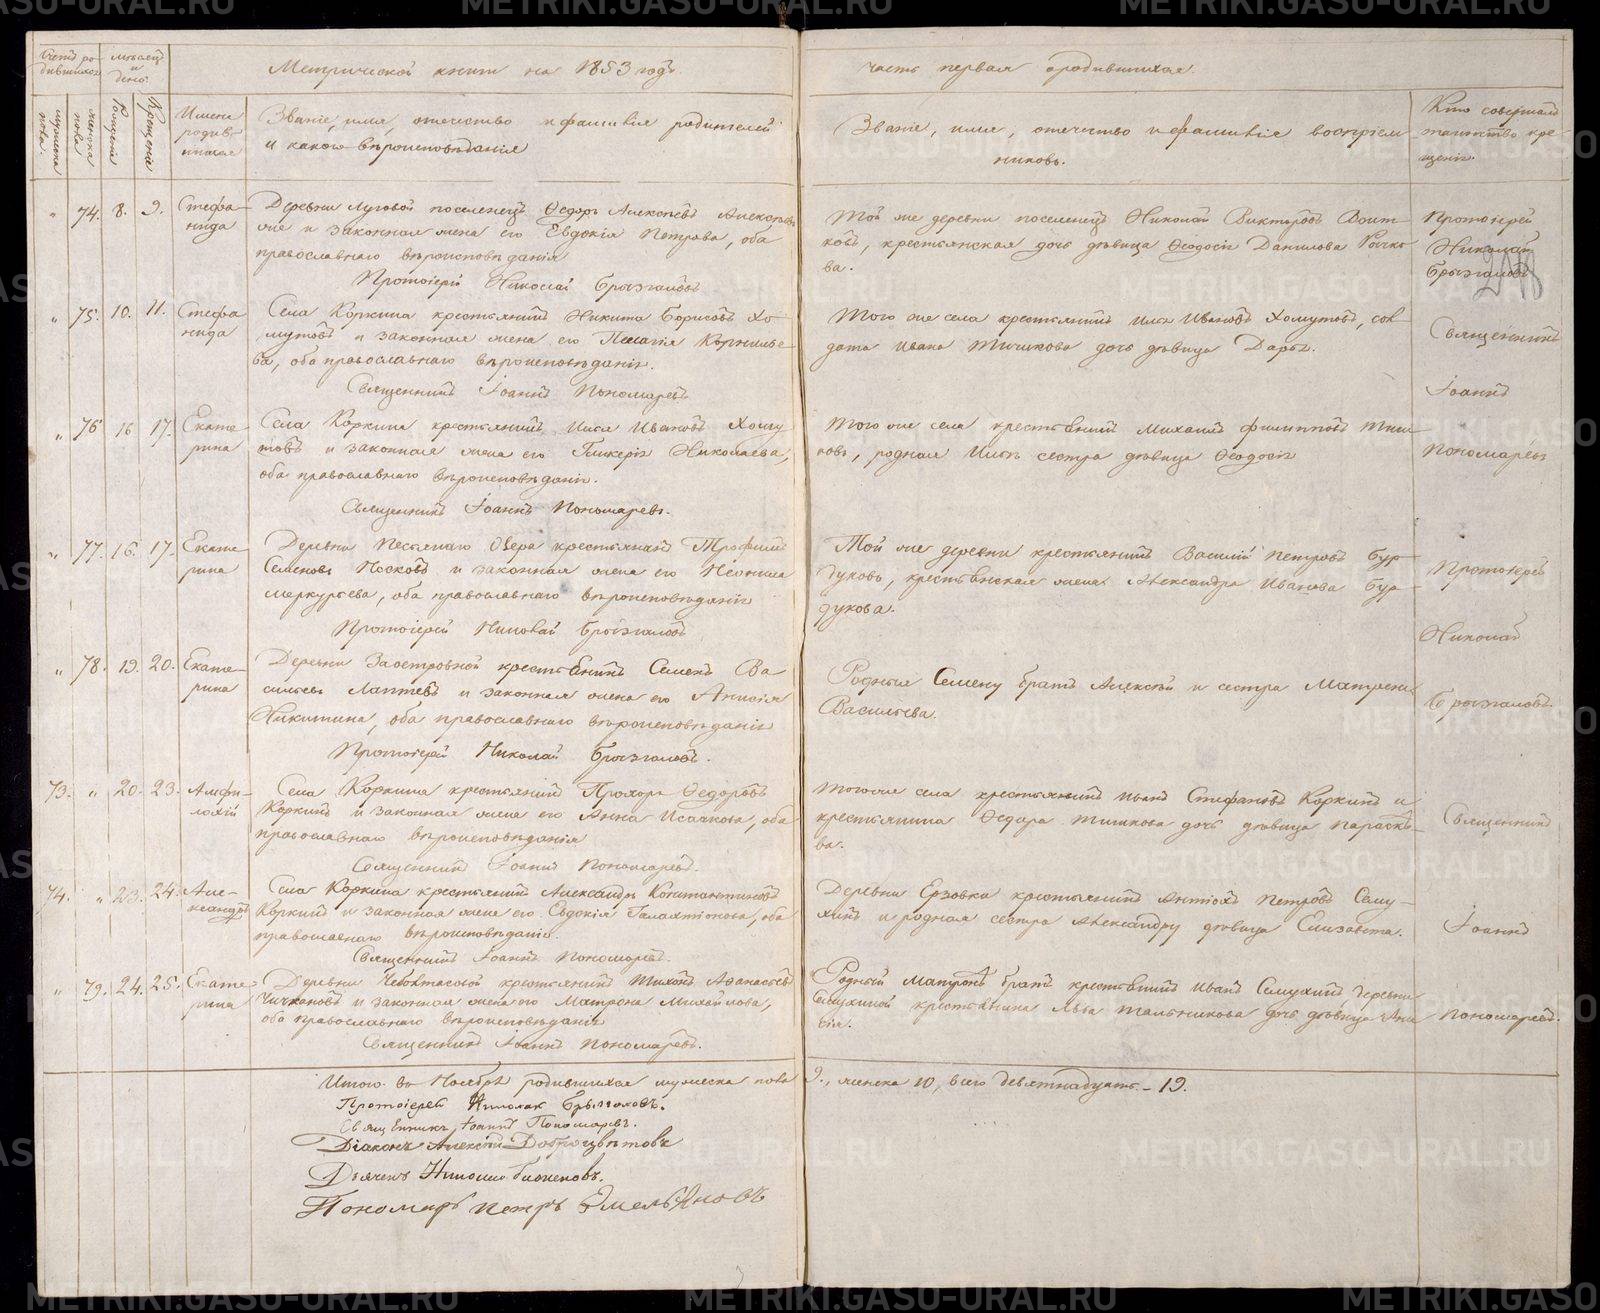 Метрической книги на 1853 годъ
часть первая о родившихся.
Счетъ ро-
дившихся
мѣсяцъ
и
день.
мужеска
пола.
женска
пола
Рожденія
Крещенія
Имена
родив-
шихся
Званіе, имя, отечество и фамилія родителей
и какого вѣроисповѣданія
Званіе, имя, отечество и фамилія воспріем
никовъ.
Кто совершалъ
таинство кре-
щенія.
" 74. 8. 9. Стефа-
нида
Деревни Луговой поселенецъ Ѳедоръ Алексѣевъ
и законная жена его Евдокія Петрова, оба
православнаго вѣроисповѣданія
Протоіерей Николай Брызгаловъ
Той же деревни поселенецъ Николай Викторовъ Воит-
ковъ, крестьянская дочь дѣвица Ѳеодосія Данилова
ва.
Протоіерей
Николай
Брызгаловъ
" 75. 10. 11. Стефа
нида
Села Коркина крестьянинъ Никита Борисовъ Хо-
мутовъ и законная жена его Пелагія Корнилье-
ва, оба православнаго вѣроисповѣданія.
Священникъ Іоаннъ Пономаревъ
Того же села крестьянинъ Илья Ивановъ Хомутовъ, сол
дата Ивана Тишкова дочь дѣвица Дарья.
Священникъ
Іоаннъ
Пономаревъ
" 76 16 17. Екате
рина
Села Коркина крестьянинъ Илья Ивановъ Хому
товъ и законная жена его Гликерія Николаева,
оба православнаго вѣроисповѣданія.
Священникъ Іоаннъ Пономаревъ.
Того же села крестьянинъ Михаилъ Филипповъ Тиш
ковъ, родная Ильѣ сестра дѣвица Ѳеодосія
" 77. 16. 17. Екате
рина
Деревни Песьянаго Озера крестьянинъ Трофимъ
Семеновъ Носковъ и законная жена его Неонила
Меркурьева, оба православнаго вѣроисповѣданія
Протоіерей Николай Брызгаловъ
Той же деревни крестьянинъ Василій Петровъ Бур-
дуковъ, крестьянская жена Александра Иванова Бур-
дукова.
Протоіерей
Николай
Брызгаловъ.
" 78. 19. 20. Екате-
рина
Деревни Заостровной крестьянинъ Семенъ Ва
сильевъ Лаптевъ и законная жена его Анисія
Никитина, оба православнаго вѣроисповѣданія
Протоіерей Николай Брызгаловъ.
Родные Семену братъ Алексѣй и сестра Матрена
Васильева.
73. " 20. 23. Амфи-
лохій
Села Коркина крестьянинъ Прохоръ Ѳедоровъ
Коркинъ и законная жена его Анна Исаакова, оба
православнаго вѣроисповѣданія
Священникъ Іоаннъ Пономаревъ.
Того же села крестьянинъ Иванъ Стефановъ Коркинъ и
крестьянина Ѳедора Тишкова дочь дѣвица Параскѣ-
ва.
Священникъ
Іоаннъ
Пономаревъ.
74. " 23. 24. Але-
ксандръ
Села Коркина крестьянинъ Александръ Константиновъ
Коркинъ и законная жена его Евдокія Галактіонова, оба
православнаго вѣроисповѣданія.
Священникъ Іоаннъ Пономаревъ.
Деревни Ерзовки крестьянинъ Антіохъ Петровъ Салу-
хинъ и родная сестра Александру дѣвица Елизавета.
" 79. 24. 25. Екате
рина
Деревни Чебактасовой крестьянинъ Тихонъ Аѳанасьевъ
Чичкановъ и законная жена его Матрона Михайлова,
оба православнаго вѣроисповѣданія
Священникъ Іоаннъ Пономаревъ.
Родной Матронѣ братъ крестьянинъ Иванъ Салухинъ, деревни
Салухиной крестьянина Льва Тальникова дочь дѣвица Ани
сія.
Итого въ Ноябрѣ родившихся мужеска пола 9., женска 10, всего девятнадцать. - 19.
Протоіерей Николай Брызгаловъ.
Священникъ Іоаннъ Пономаревъ.
Діаконъ Алексѣй Доброцвѣтовъ
Дьячекъ
Пономарь Петръ Емельяновъ
METRIKI.GASO-URAL.RU